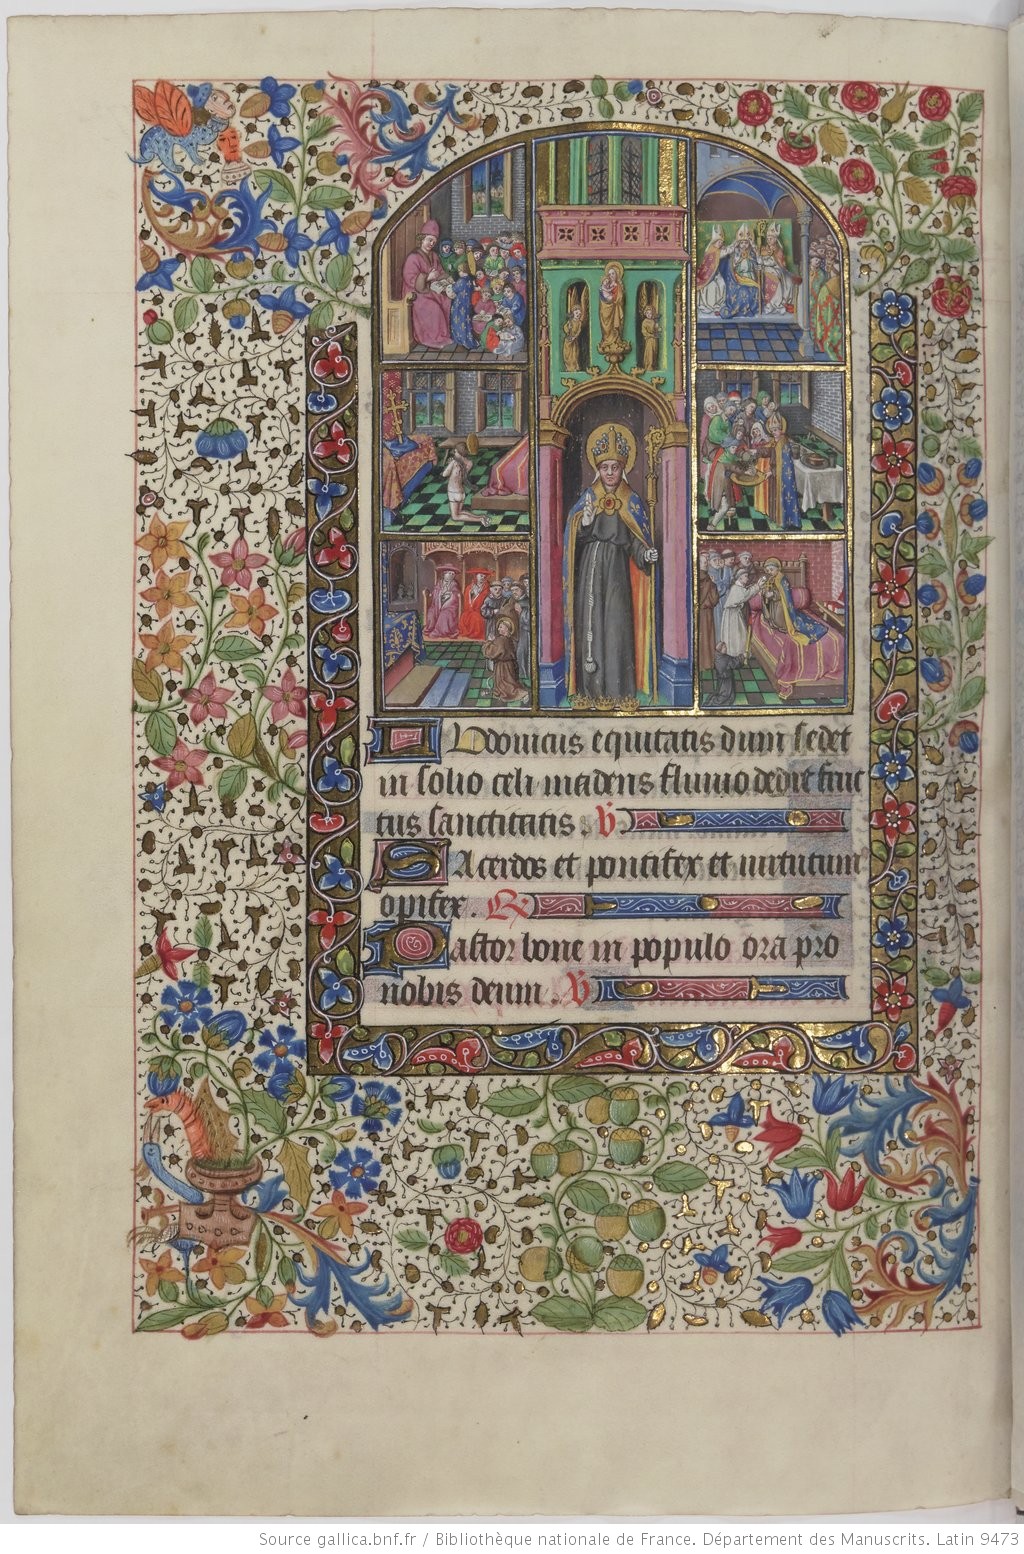 Ludovicus equitatis dum sedet
in solio celi madens fluvio dedit fruc
tus sanctitatis. V
Sacerdos et pontifex et virtutum
opifex. R
Pastor bone in populo ora pro
nobis deum. V
Source gallica.bnf.fr / Bibliothèque nationale de France. Département des Manuscrits. Latin 9473